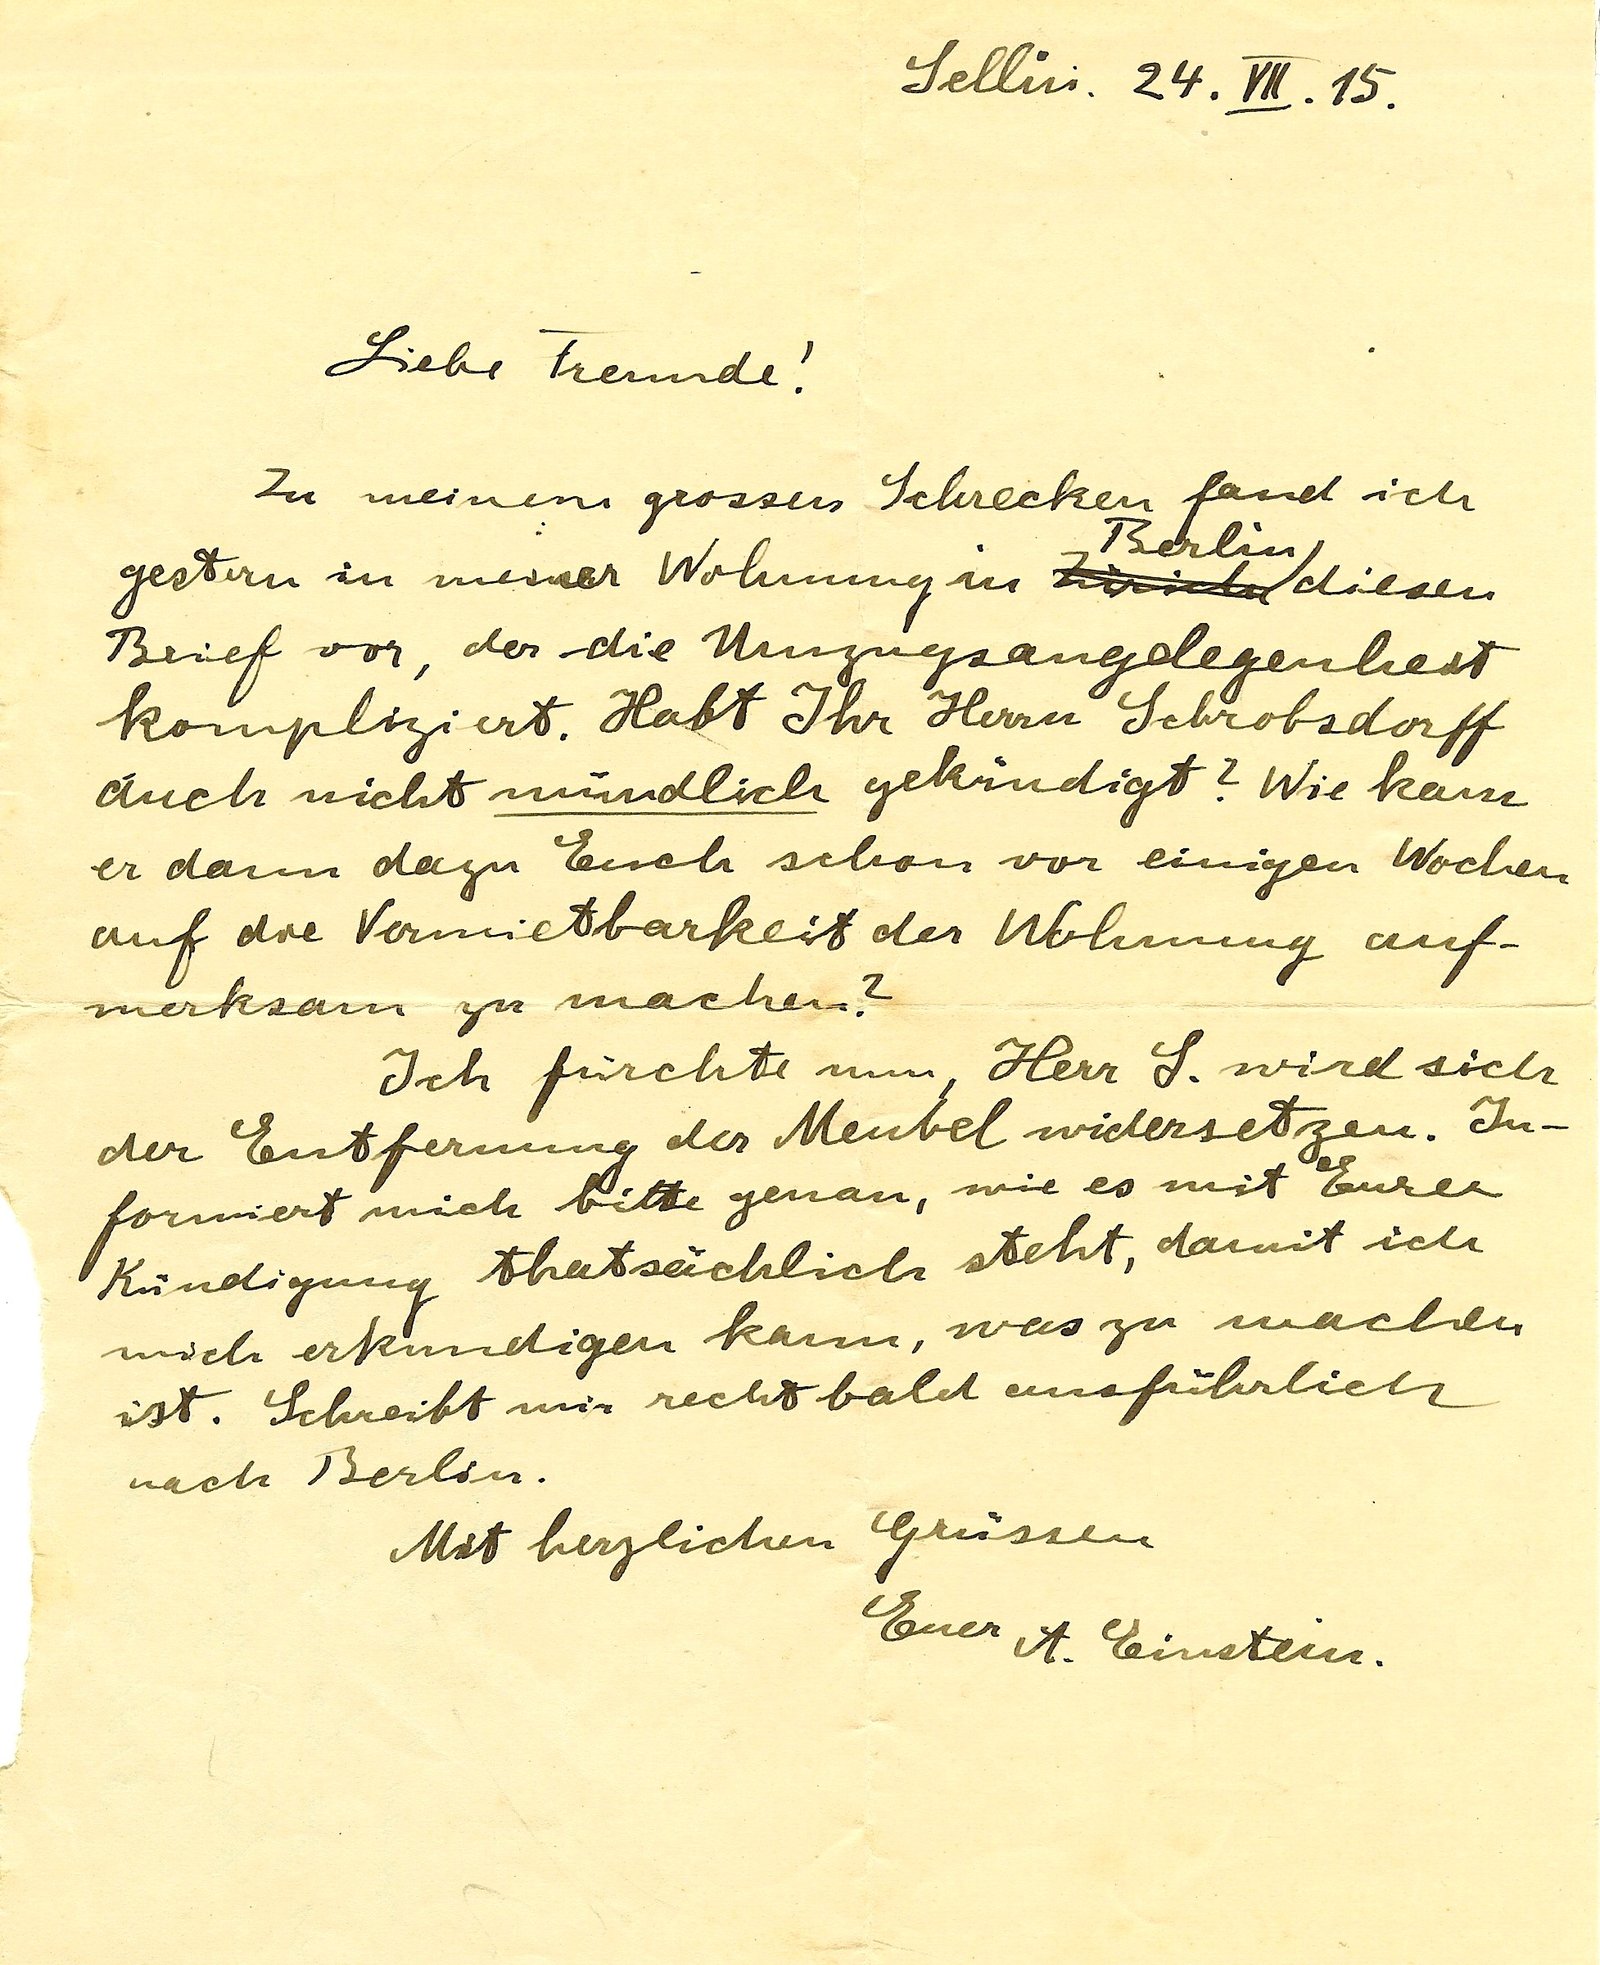 Sellin. 24. VII. 15.
Liebe Freunde!
Zu meinem grossen Schrecken fand ich
gestern in meiner Wohnung in Berlin diesen
Brief vor, der die Umzugsangelegenheit
kompliziert. Habt Ihr Herrn Schrobsdorff
auch nicht mündlich gekündigt? Wie kam
er dann dazu Euch schon vor einigen Wochen
auf die Vermietbarkeit der Wohnung auf-
merksam zu machen?
Ich fürchte nun, Herr S. wird sich
der Entfernung der Meubel widersetzen. In-
formiert mich bitte genau, wie es mit Eurer
Kündigung thatsächlich steht, damit ich
mich erkundigen kann, was zu machen
ist. Schreibt mir recht bald ausführlich
nach Berlin.
Mit herzlichen Grüssen
Euer A. Einstein.